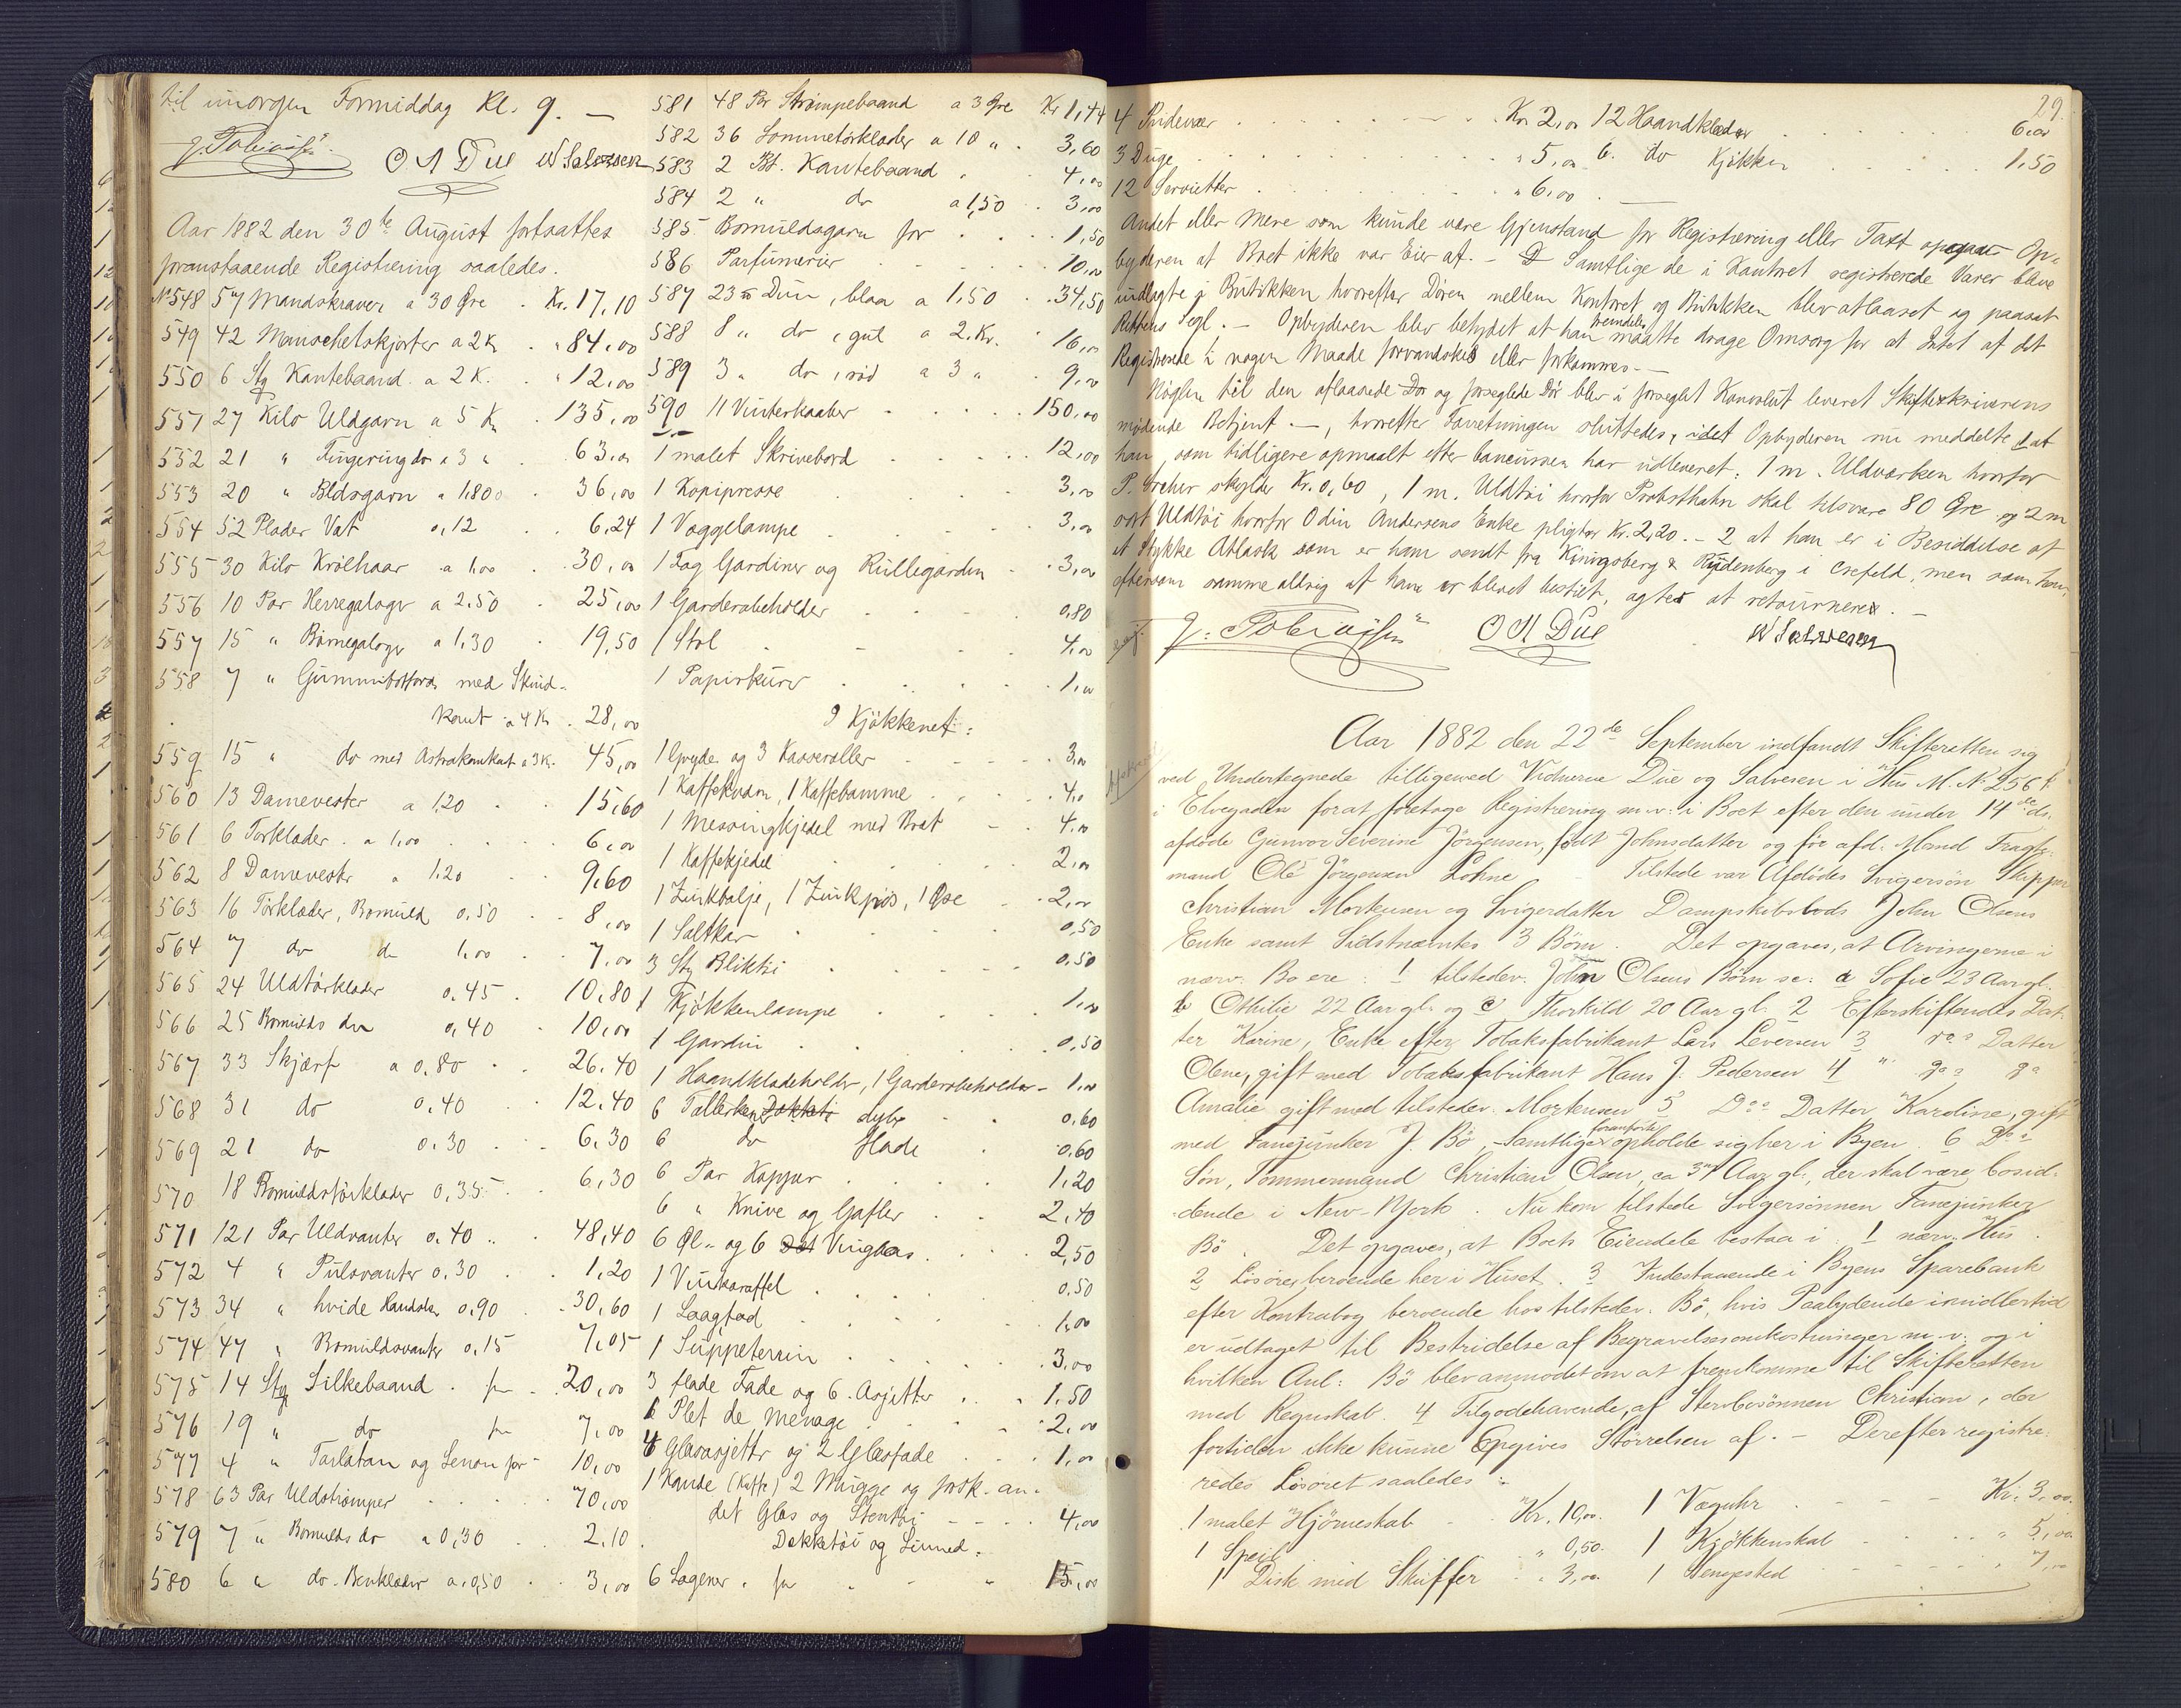 til imorgen Formiddag Kl. 9. —
J. Tobiassen O A Due W Salvesen
Aar 1882 den 30te August fortsattes
foranstaaende Registrering saaledes.
No 548 57 Mandskraver a 30 Øre . Kr. 17,10
549 42 Manschetskjorter a 2 Kr . " 84,00
550 6 Stg Kantebaand a 2 K. . " 12,00
551 27 Kilo Uldgarn a 5 Kr . 135,00
552 21 " Fingering do a 3 " . 63,00
553 20 " Bldsgarn a 1,80 . 36,00
554 52 Plader Vat 0,12 . 6,24
555 30 Kilo Krölhaar a 1,00 . 30,00
556 10 Par Herregaloger a 2.50 . 25,00
557 15 " Börnegaloger a 1,30 . 19,50
558 7 " Gummibotforer med Skind-
kant a 4 Kr . 28,00
559 15 " do med Astrakankat a 3 Kr. 45,00
560 13 Damevester a 1,20 . 15,60
561 6 Törklæder . a 1,00 . 6,00
562 8 Damevester a 1.20 . 9,60
563 16 Törklæder, Bomuld 0,50 . 8,00
564 7 do do 1,00 . 7,00
565 24 Uldtörklæder 0,45 . 10,80
566 25 Bomulds do 0,40 . 10,00
567 33 Skjærf a 0,80 . 26,40
568 31 do 0,40 . 12,40
569 21 do 0,30 . 6,30
570 18 Bomuldstörklæder 0,35 . 6,30
571 121 Par Uldvanter 0,40 . 48,40
572 4 " Pulsvanter 0,30 . 1,20
573 34 " hvide Handsker 0,90 . 30,60
574 47 " Bomuldsvanter 0,15 7,05
575 14 Stg Silkebaand . for . 20,00
576 19 " do for . 7,00
577 4 " Tarlatan og Lenon for 10,00
578 63 Par Uldströmper . 70,00
579 7 " Bomulds do a 0,30 2,10
580 6 " do. Benklæder a 0,50 . 3,00
581 48 Par Strömpebaand a 3 Øre Kr 1,44
582 36 Lommetörklæder a 10 " . 3,60
583 2 Bt. Kantebaand . 4,00
584 2 " do a 1,50 . 3,00
585 Bomuldsgarn for . 1,50
586 Parfumerier . 10,00
587 23 Dun, blaa a 1,50 . 34,50
588 8 " do, gul a 2. Kr. . 16,00
589 3 " do, röd a 3 " 9,00
590 11 Vinterkaaber . 150,00
1 malet Skrivebord . 12,00
1 Kopipresse . 3,00
1 Væggelampe . 3,00
1 Fag Gardiner og Rullegardin . 3,00
1 Garderobeholder . 0,80
1 Stol . 4,00
1 Papirkurv . 1,00
I Kjökkenet:
1 Gryde og 3 Kasseroller . 3,00
1 Kaffekvarn, 1 Kaffebamme . 4,00
1 Messingkjedel med Bræt . 4,00
1 Kaffekjedel . 2,00
1 Zinkbalje, 1 Zinkpös, 1 Øse . 2,00
1 Saltkar . 0,50
3 Stg Bliktöi . 0,50
1 Kjökkenlampe . 1,00
1 Gardin . 0,50
1 Haandklædeholder, 1 Garderobeholder . 1,00
6 Tallerkener dybe . 0,60
6 do flade . 0,60
6 Par Kopper . 1,20
6 " Knive og Gafler . 2,40
6 Øl- og 6 Vinglas . 2,50
1 Vinkaraffel . 0,50
1 Laagfad . 1,00
1 Suppeterrin . 3,00
3 flade Fade og 6. Asjetter . 1,50
1 Plet de menage . 2,00
4 Glasasjetter og 2 Glasfade . 1,00
1 Kande (Kaffe) 2 Mugge og forsk. an-
det Glas og Stentöi . 4,00
Dækketöi og Linned:
6 Lagener . for . 15,00
29.
4 Pudevær . Kr. 2,00 12 Haandklæder . 6,00
3 Duge . " 5,00 6. do Kjökken . 1,50
12 Servietter . " 6,00 . —
Andet eller mere som kunde være Gjenstand for Registrering eller Taxt opgaar Op-
byderen at Boet ikke var Eier af. — Samtlige de i Kontoret registrerede Varer bleve
indlagte i Butikken hvorefter Dören mellem Kontoret og Butikken blev aflaaset og paasat
Rettens Segl. — Opbyderen blev betydet at han fremdeles maatte drage Omsorg for at Intet af det
Registrerede i nogen Maade forvanskes eller forkommes. —
Nöglen til den aflaasede og forseglede Dör blev i forseglet Konvolut leveret Skifteskriverens
mödende Betjent. —, hvorefter Forretningen sluttedes, idet Opbyderen nu meddelte 1 at
han, som tidligere opmaalt efter har udleveret: 1 m. Uldværken hvorfor
P. skylder Kr. 0,60, 1 m. Uldtöi hvorfor Probsthahn skal tilsvare 80 Øre og 2 m
sort Uldtöi hvorfor Odin Andersens Enke pligter Kr. 2,20. — 2 at han er i Besiddelse af
et Stykke Atlask som er ham sendt fra Königsberg & Rüdenberg i Crefeld, men som han,
eftersom samme aldrig af ham er blevet bestilt, agter at retournere. —
J. Tobiassen O A Due W Salvesen
Aar 1882 den 22de September indfandt Skifteretten sig
ved Undertegnede tilligemed Vidnerne Due og Salvesen i Hus M. No 256 f.
i Elvegaden forat foretage Registrering m.v. i Boet efter den under 14de ds.
afdöde Gunvor Severine Jörgensen, födt Johnsdatter og för afd. Mand Fragte-
mand Ole Jörgensen Lohne Tilstede var Afdödes Svigersön Skipper
Christian Mortensen og Svigerdatter Dampskibslods John Olsens
Enke samt Sidstnævntes 3 Börn. Det opgaves, at Arvingerne i
nærv. Bo ere: 1 tilstedev. John Olsens Börn se. a Sofie 23 Aar gl.
b Othilie 22 Aar gl. og c Thorkild 20 Aar gl. 2 Efterskiftendes Dat-
ter Karine, Enke efter Tobaksfabrikant Lars Leversen 3 do Datter
Olene, gift med Tobaksfabrikant Hans J. Pedersen 4 " do do
Amalie gift med tilstedev. Mortensen 5 Do Datter Karoline, gift
med Fanejunker J. Bö, — Samtlige foranförte opholde sig her i Byen. 6 Dos
Sön, Tömmermand Christian Olsen, ca 37 Aar gl., der skal være bosid-
dende i New-York. Nu kom tilstede Svigersönnen Fanejunker
Bö. Det opgaves, at Boets Eiendele bestaa i: 1 nærv. Hus.
2 Lösöre, beroende her i Huset. 3 Indestaaende i Byens Sparebank
efter Kontrabog beroende hos tilstedev. Bö, hvis Paalydende imidlertid
er udtaget til Bestridelse af Begravelsesomkostninger m.v. og i
hvilken Anl: Bö blev anmodet om at fremkomme til Skifteretten
med Regnskab. 4 Tilgodehavende, af Stervbosönnen Christian, der
fortiden ikke kunne Opgives Störrelsen af. — Derefter registre-
redes Lösöret saaledes:
1 malet Hjörneskab . Kr. 10,00. 1 Væguhr . Kr. 3,00.
1 Speil . " 0,50. 1 Kjökkenskab . " 5,00.
1 Disk med Skuffer . " 3,00. 1 Sengested . " 7,00